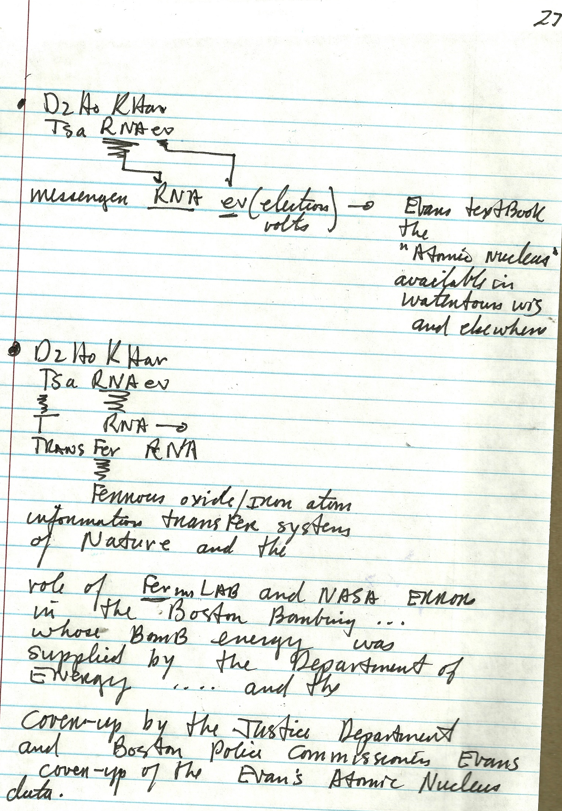 27
• Dz Ho K Har
Tsa RNA ev
messenger RNA ev (electron volts) → Evans textBook
the
"Atomic Nucleus"
available in
Watertown WIS
and elsewhere
• Dz Ho K Har
Tsa RNA ev
T RNA →
TRANS Fer RNA
Ferrous oxide/Iron atom
information transfer systems
of Nature and the
role of FermLAB and NASA ERROR
in the Boston Bombing ...
whose BomB energy was
supplied by the Department of
Energy .... and the
Cover-up by the Justice Department
and Boston Police Commissioner Evans
cover-up of the Evan's Atomic Nucleus
data.